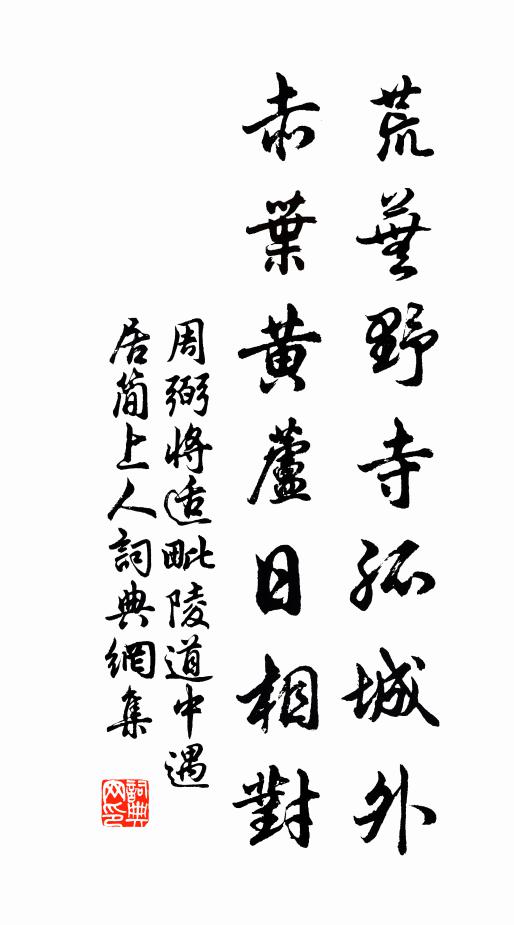 荒蕪野寺孤城外
赤葉黃蘆日相對
周弼將適毗陵道中遇
居簡上人詞典網集
詞典網印